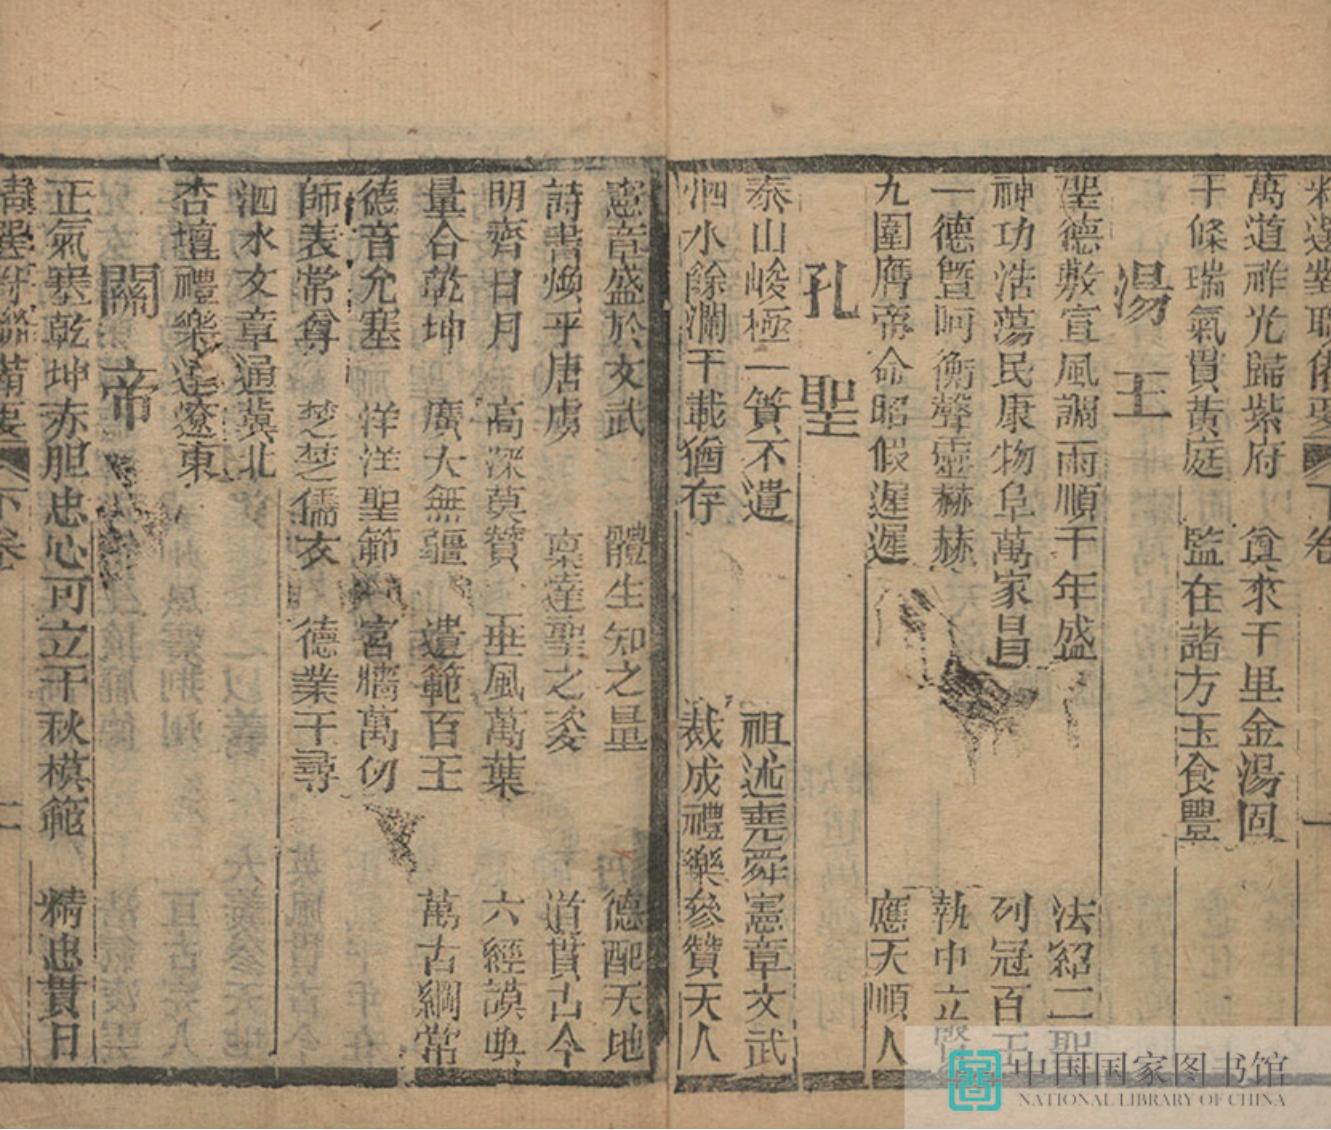 精選對聯備要 下卷 一
萬道祥光歸紫府 食來千里金湯固
千條瑞氣貫黃庭 監在諸方玉食豐
湯王
聖德敷宣風調雨順千年盛 法紹二聖
神功浩蕩民康物阜萬家昌 列冠百王
一德曁阿衡聲靈赫赫 執中立
九圍膺帝命昭假遲遲 應天順人
孔聖
泰山峻極一簣不遺 祖述堯舜憲章文武
泗水餘瀾千載猶存 裁成禮樂參贊天人
憲章盛於文武 體生知之量 德配天地
詩書煥乎唐虞 稟達聖之姿 道貫古今
明齊日月 高深莫贊 垂風萬葉 六經謨典
量合乾坤 廣大無疆 遺範百王 萬古綱常
德音允塞 洋洋聖節 宮牆萬仞
師表常尊 楚楚儒衣 德業千尋
泗水文章通冀北
杏壇禮樂達遼東
關帝
正氣塞乾坤赤胆忠心可立千秋模範 精忠貫日
精選對聯備要 下卷 二
中国国家图书馆
NATIONAL LIBRARY OF CHINA